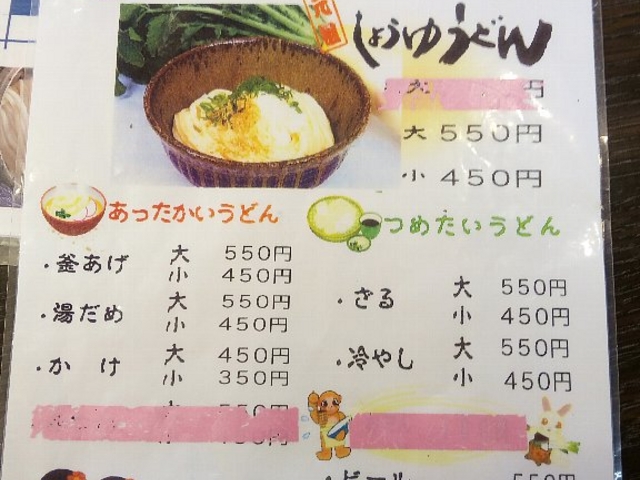 元祖
しょうゆうどん
大 円
大 550円
小 450円
あったかいうどん
・釜あげ 大 550円
小 450円
・湯だめ 大 550円
小 450円
・かけ 大 450円
小 350円
つめたいうどん
・ざる 大 550円
小 450円
・冷やし 大 550円
小 450円
・ビール 550円